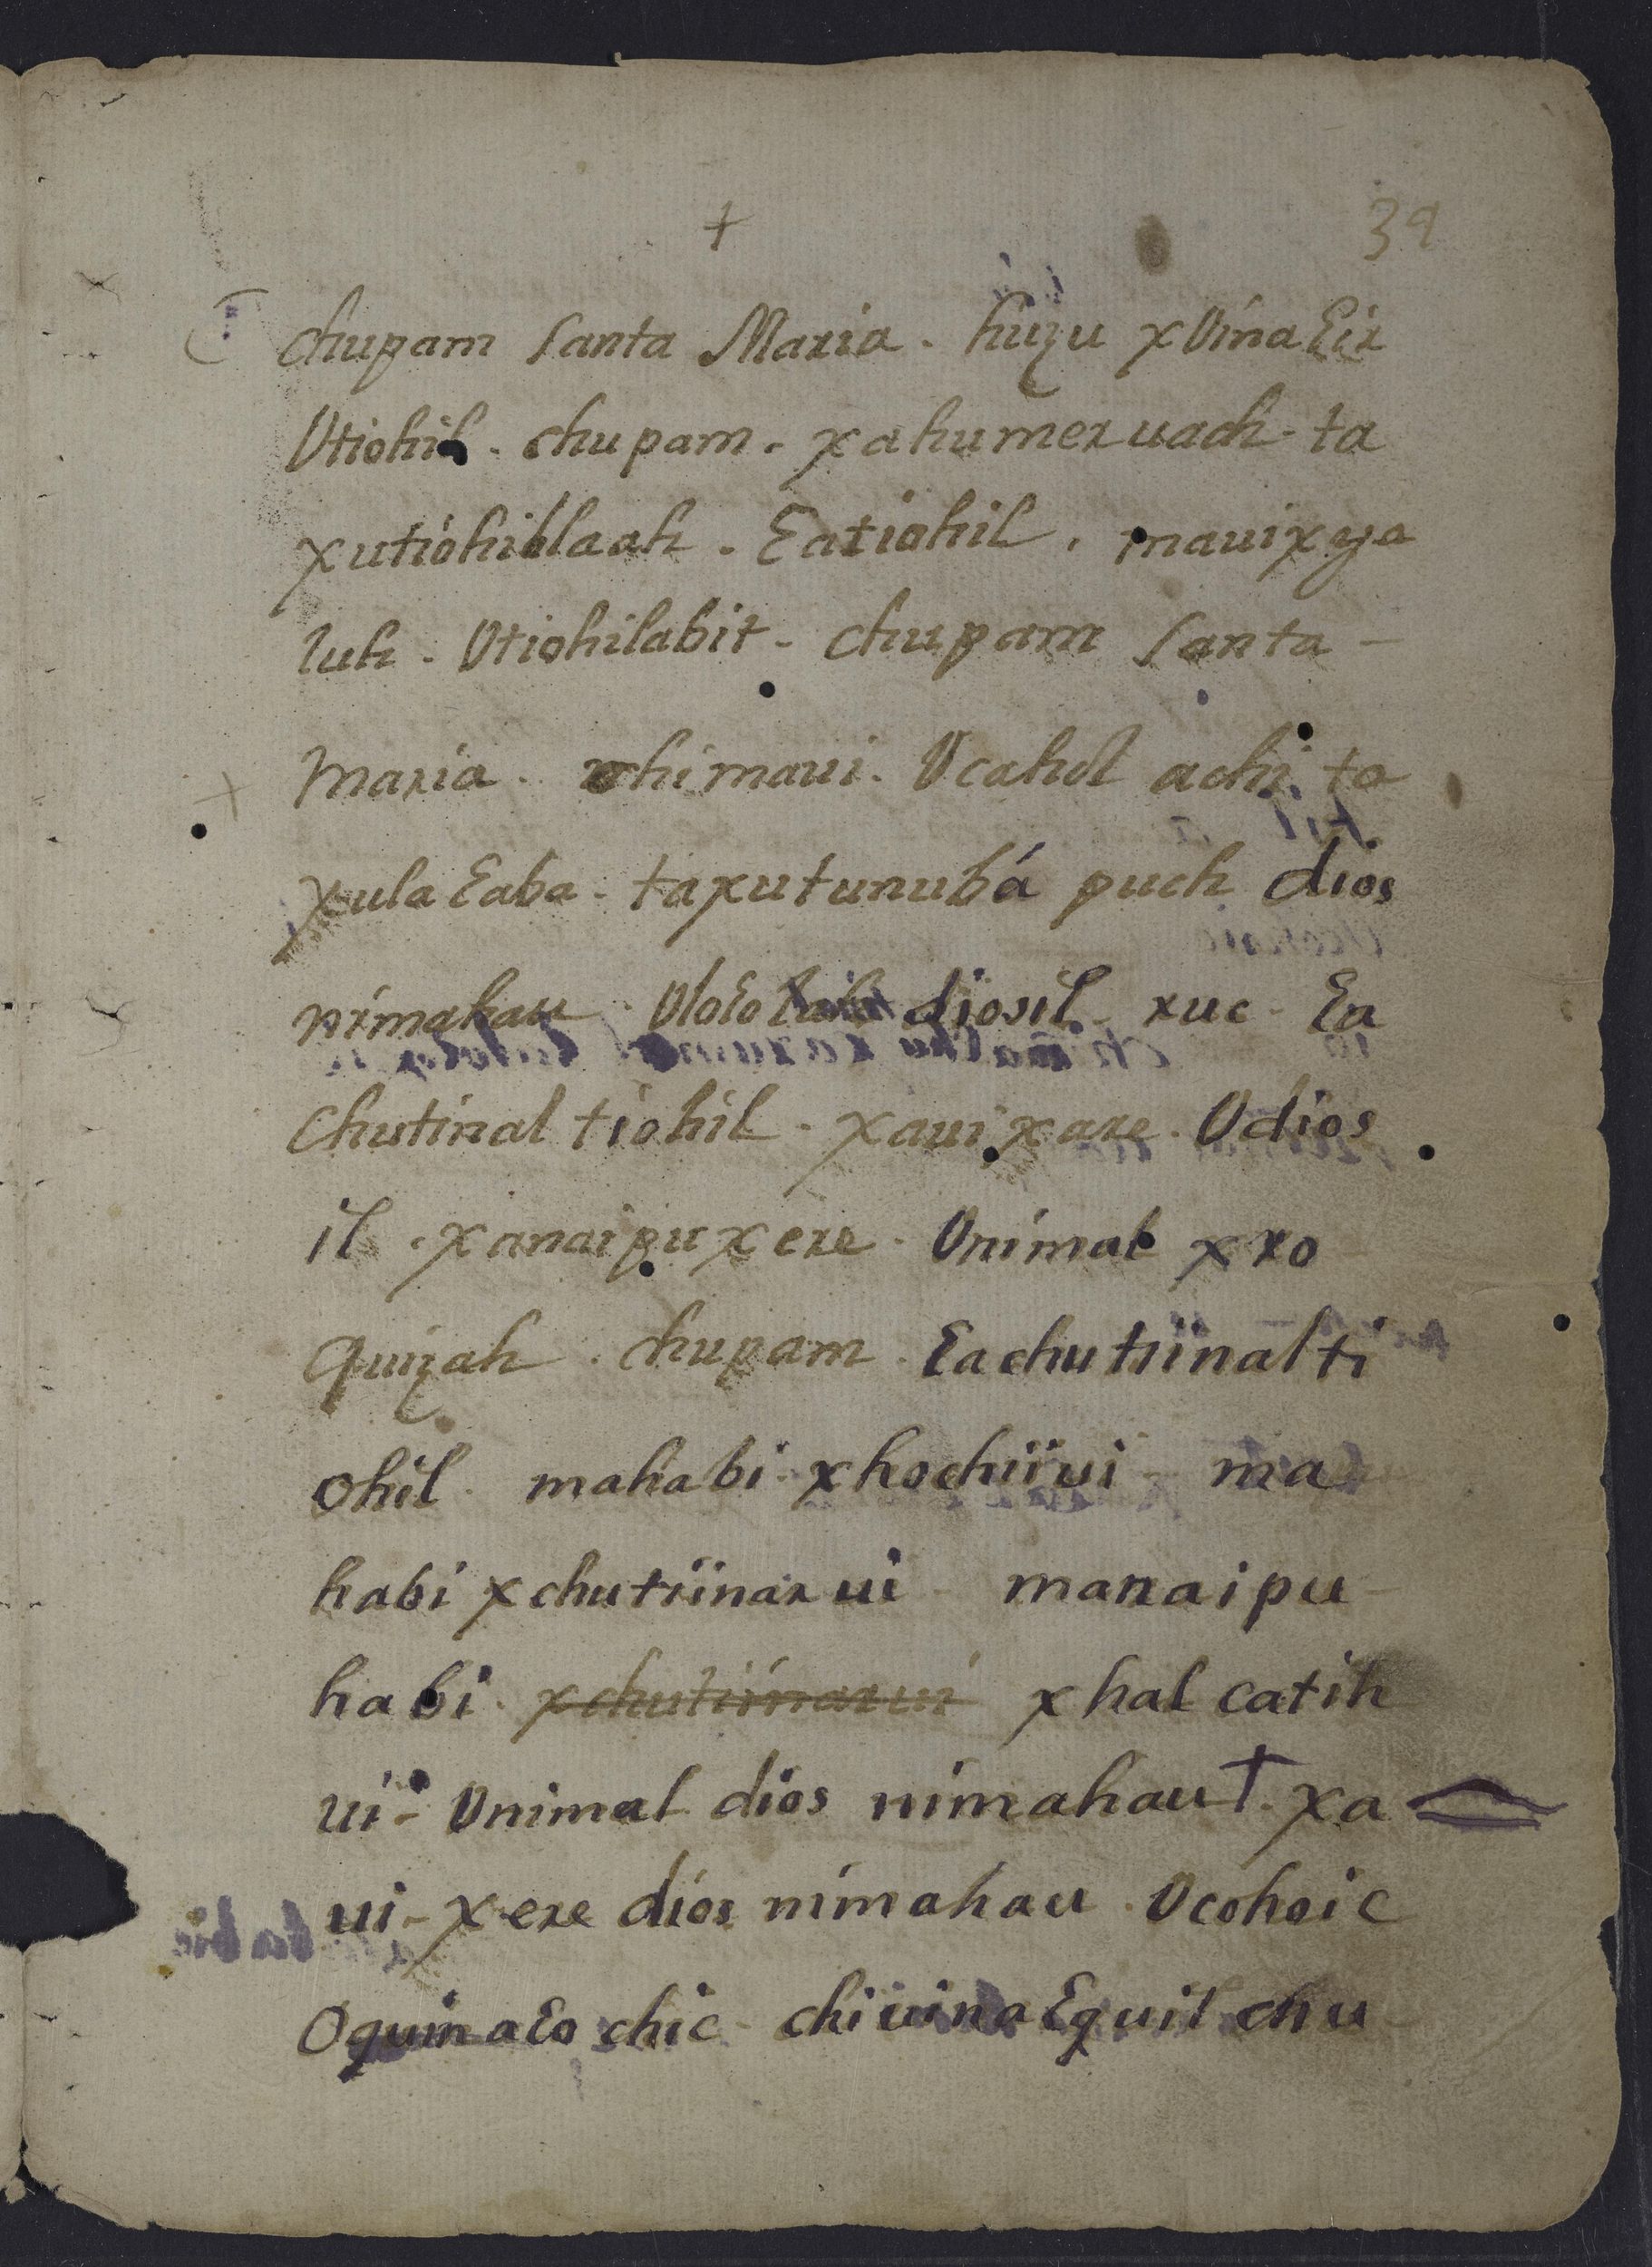 +
39
chupam santa Maria. huzu xVinaƐir
Vtiohil. chupam. xahumeruach-ta
xutiohiblaah. Ɛatiohil. mauixya
luh. Vtiohilabit- chupam santa-
maria. chimaui. Vcahol achi. ta
xulaƐaba. taxutunubá puch dios
nimahau VloƐolah diosil ruc Ɛa
chutinal tiohil. xauixare. Vdios
il. xanaipuxere. Vnimal xro
quizah. chupam. Ɛachutiinalti
ohil. mahabi xhochiiui ma
habi xchutiinarui manaipu
habi. xchutiinarui xhal catih
ui- Vnimal dios nimahau†. xa
ui- xere dios nimahau. Vcohoic
OquinaƐo chic- chiuinaƐquil chu